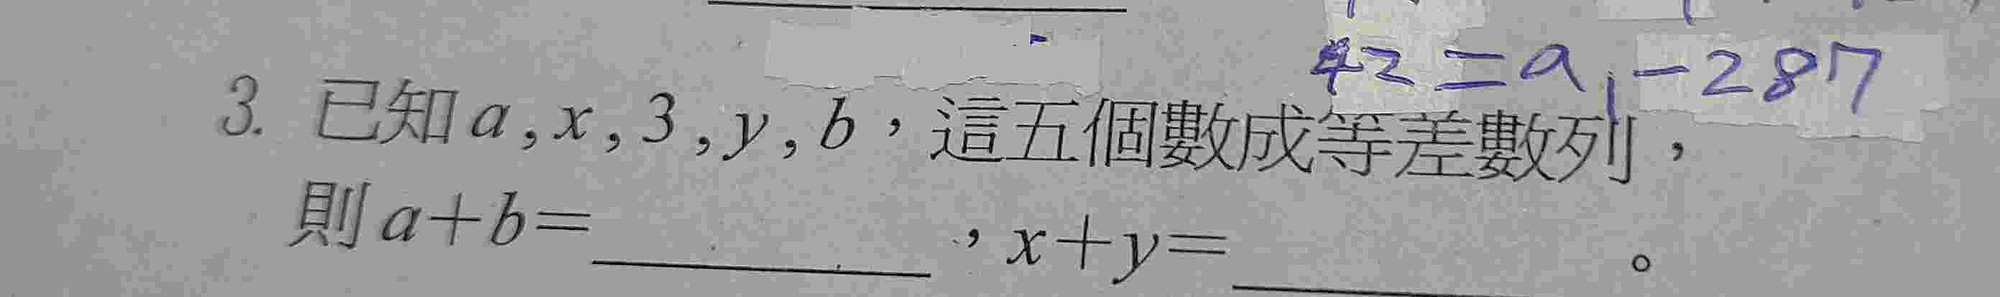 42=a₁-287
3. 已知a,x,3,y,b，這五個數成等差數列，
則a+b=＿＿＿＿，x+y=＿＿＿＿。